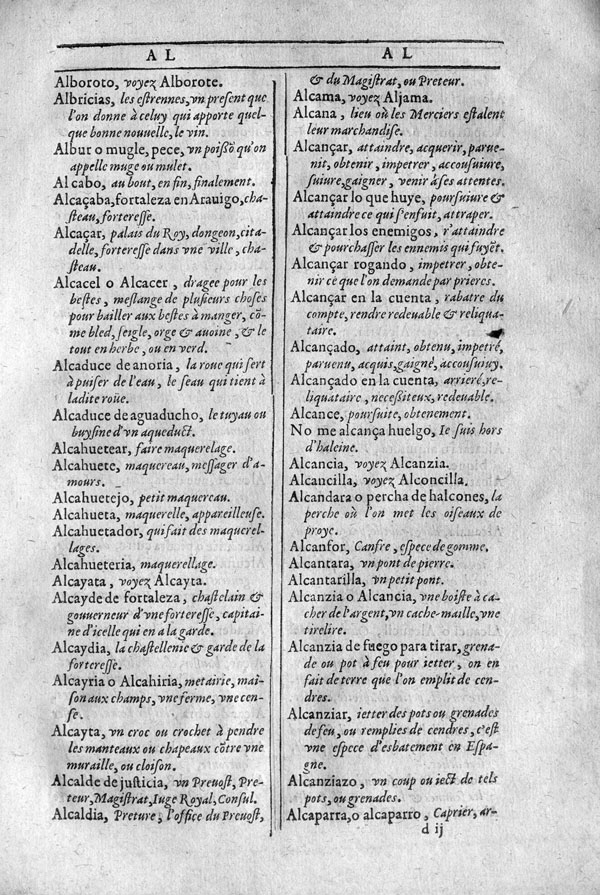 AL
Alboroto, voyez Alborote.
Albricias, les estrennes, vn present que
l'on donne à celuy qui apporte quel-
que bonne nouuelle, le vin.
Albur o mugle, pece, vn poißõ qu'on
appelle muge ou mulet.
Al cabo, au bout, en fin, finalement.
Alcaçaba, fortaleza en Arauigo, cha-
steau, forteresse.
Alcaçar, palais du Roy, dongeon, cita-
delle, forteresse dans vne ville, cha-
steau.
Alcacel o Alcacer, dragee pour les
bestes, meslange de plusieurs choses
pour bailler aux bestes à manger, cõ-
me bled, seigle, orge & auoine, & le
tout en herbe, ou en verd.
Alcaduce de anoria, la roue qui sert
à puiser de l'eau, le seau qui tient à
ladite roüe.
Alcaduce de aguaducho, le tuyau ou
buysine d'vn aqueduct.
Alcahuetear, faire maquerelage.
Alcahuete, maquereau, messager d'a-
mours.
Alcahuetejo, petit maquereau.
Alcahueta, maquerelle, appareilleuse.
Alcahuetador, qui fait des maquerel-
lages.
Alcahueteria, maquerellage.
Alcayata, voyez Alcayta.
Alcayde de fortaleza, chastelain &
gouuerneur d'vne forteresse, capitai-
ne d'icelle qui en a la garde.
Alcaydia, la chastellenie & garde de la
forteresse.
Alcayria o Alcahiria, metairie, mai-
son aux champs, vne ferme, vne cen-
se.
Alcayta, vn croc ou crochet à pendre
les manteaux ou chapeaux cõtre vne
muraille, ou cloison.
Alcalde de justicia, vn Preuost, Pre-
teur, Magistrat, Iuge Royal, Consul.
Alcaldia, Preture, l'office du Preuost,
AL
& du Magistrat, ou Preteur.
Alcama, voyez Aljama.
Alcana, lieu où les Merciers estalent
leur marchandise.
Alcançar, attaindre, acquerir, parue-
nit, obtenir, impetrer, accousuiure,
suiure, gaigner, venir à ses attentes.
Alcançar lo que huye, poursuiure &
attaindre ce qui s'enfuit, attraper.
Alcançar los enemigos, r'attaindre
& pourchasser les ennemis qui fuyẽt.
Alcançar rogando, impetrer, obte-
nir ce que l'on demande par prieres.
Alcançar en la cuenta, rabatre du
compte, rendre redeuable & reliqua-
taire.
Alcançado, attaint, obtenu, impetré,
paruenu, acquis, gaigné, accousuiuy.
Alcançado en la cuenta, arrieré, re-
liquataire, necessiteux, redeuable.
Alcance, poursuite, obtenement.
No me alcança huelgo, Ie suis hors
d'haleine.
Alcancia, voyez Alcanzia.
Alcancilla, voyez Alconcilla.
Alcandara o percha de halcones, la
perche où l'on met les oiseaux de
proye.
Alcanfor, Canfre, espece de gomme.
Alcantara, vn pont de pierre.
Alcantarilla, vn petit pont.
Alcanzia o Alcancia, vne boiste à ca-
cher de l'argent, vn cache-maille, vne
tirelire.
Alcanzia de fuego para tirar, grena-
de ou pot à feu pour ietter, on en
fait de terre que l'on emplit de cen-
dres.
Alcanziar, ietter des pots ou grenades
de feu, ou remplies de cendres, c'est
vne espece d'esbatement en Espa-
gne.
Alcanziazo, vn coup ou iect de tels
pots, ou grenades.
Alcaparra, o alcaparro, Caprier, ar-
d ij